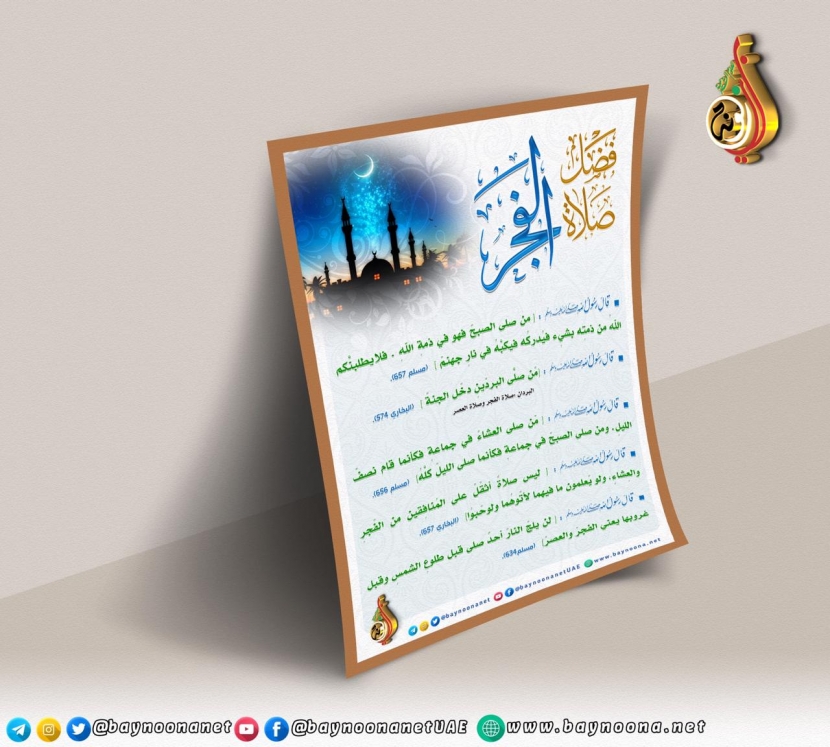 فَضْلُ
صَلاَةِ
الفَجْرِ
قَالَ رَسُولُ اللهِ ﷺ : | من صلى الصبحَ فهو في ذمةِ اللهِ . فلا يطلبنَّكم
اللهُ من ذمته بشيء فيُدركَه فيَكُبَّهُ في نارِ جهنمَ | (مسلم 657).
قَالَ رَسُولُ اللهِ ﷺ : |مَن صلَّى البردَينِ دخَل الجنةَ | (البخاري 574).
البردان :صلاة الفجر وصلاة العصر
قَالَ رَسُولُ اللهِ ﷺ : | مَن صلى العشاءَ في جماعة فكأنما قام نصفَ
الليل. ومن صلى الصبحَ في جماعة فكأنما صلى الليلَ كلَّهُ| (مسلم 656).
قَالَ رَسُولُ اللهِ ﷺ : | ليس صلاةٌ أثقلُ على المُنَافِقين من الفَجر
والعشاءِ، ولو يَعلمونَ ما فيهما لأتَوْهُما ولو حَبْوًا| (البخاري 657).
قَالَ رَسُولُ اللهِ ﷺ : | لن يلجَ النارَ أحدٌ صلى قبل طلوعِ الشمسِ وقبل
غروبِها يعني الفجرَ والعصرَ| (مسلم634).
@baynoonanet @baynoonanetUAE www.baynoona.net
@baynoonanet @baynoonanetUAE www.baynoona.net